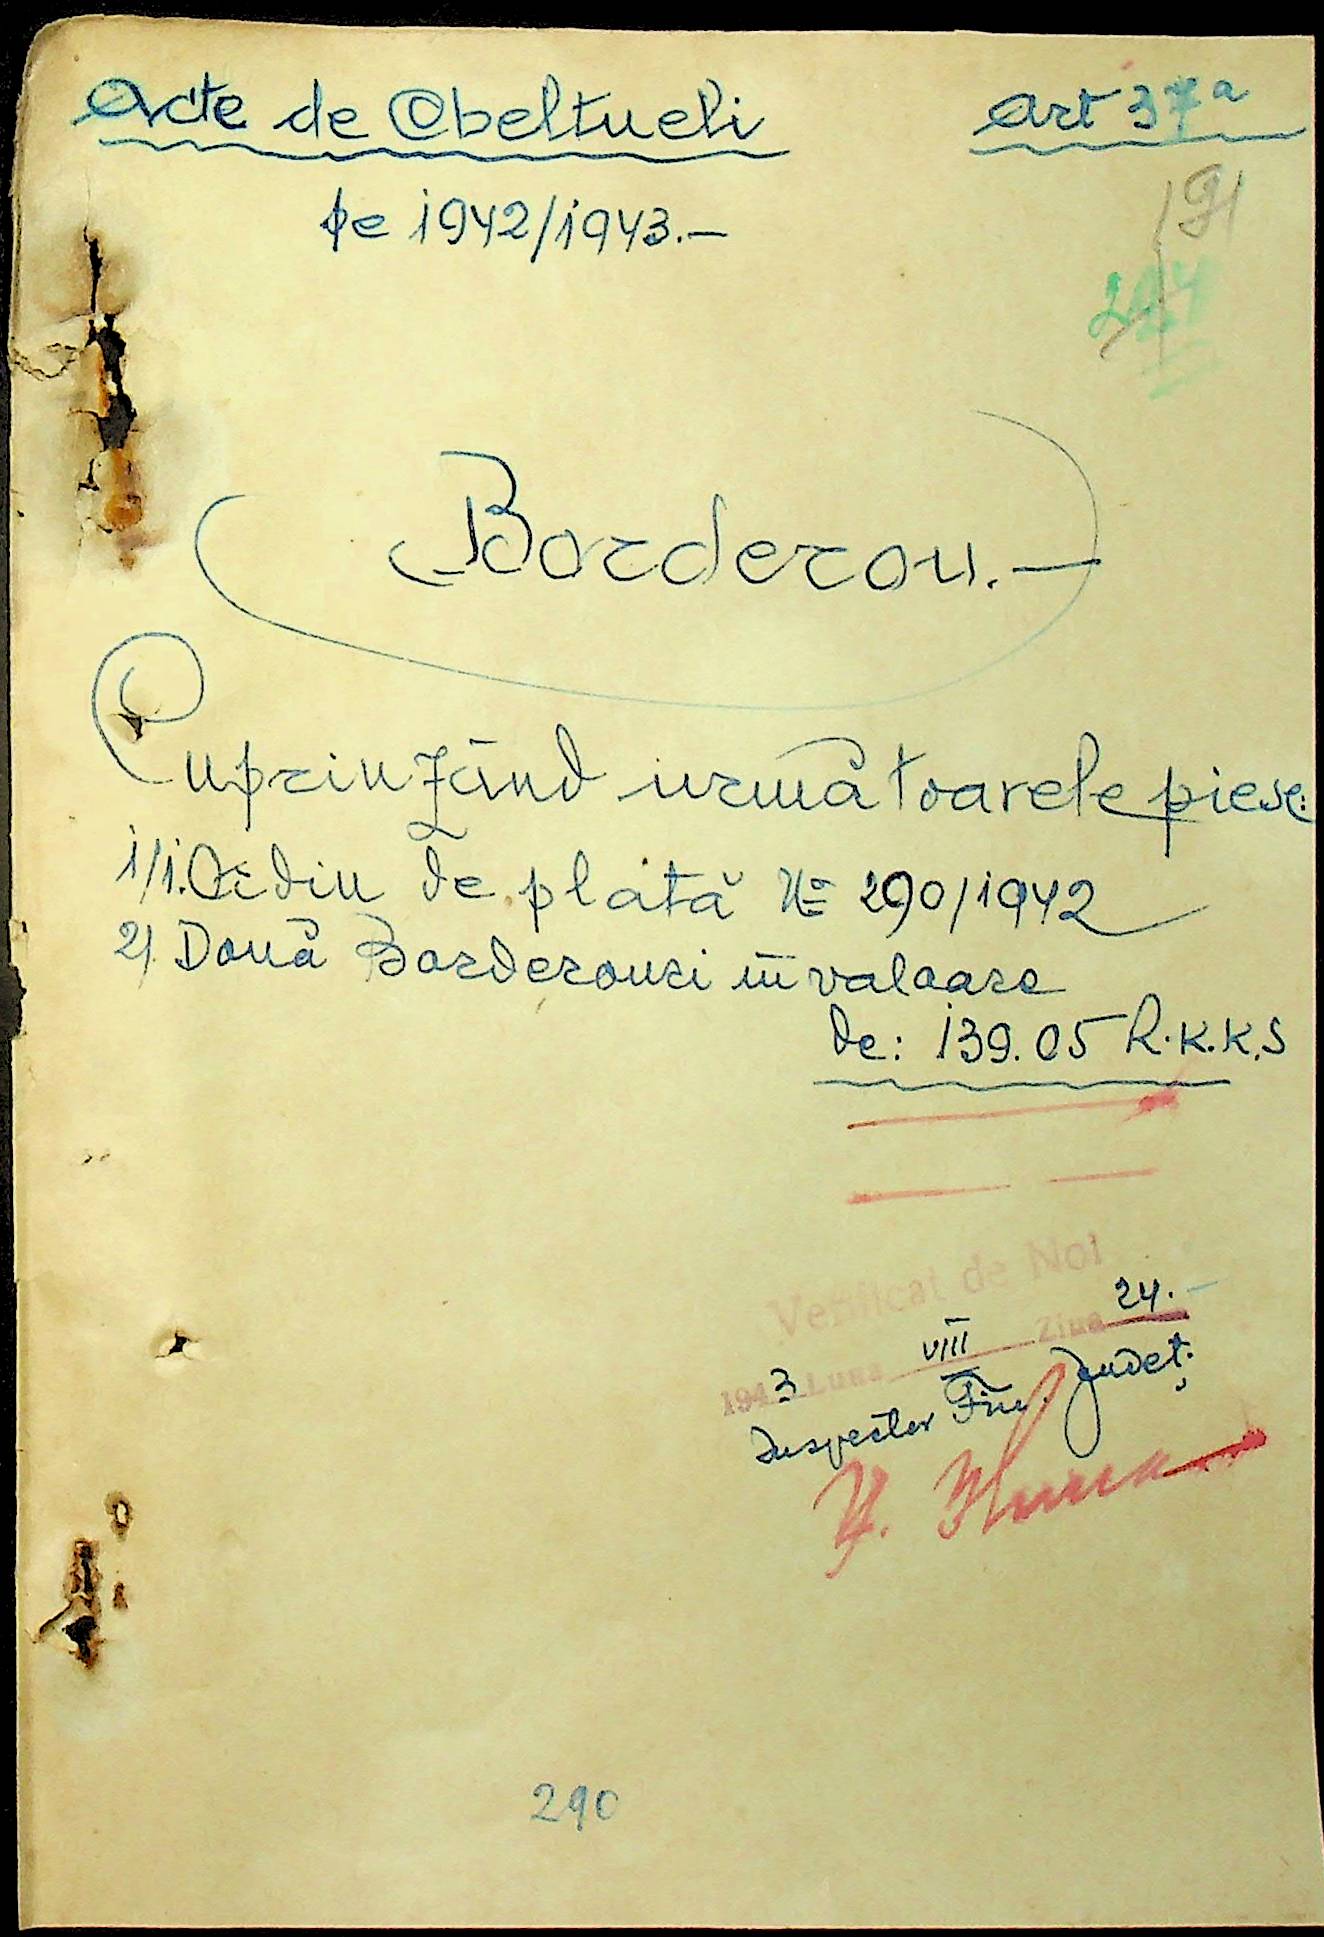 Acte de Cheltueli
Art 37 a
pe 1942/1943.-
191
Borderou.-
Cuprinzând următoarele piese:
1/1. Ordin de plată No 290/1942
2/. Două Borderouri în valoare
de: 139.05 R.K.K.S
Verificat de Noi
1943 Luna VIII Ziua 24.-
Inspector Fin. Județ:
290